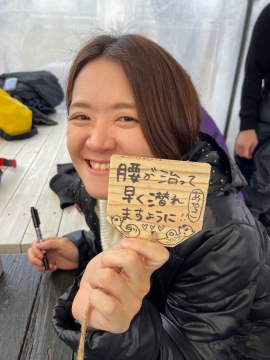 腰が治って
早く潜れ
ますように!!
あやこ